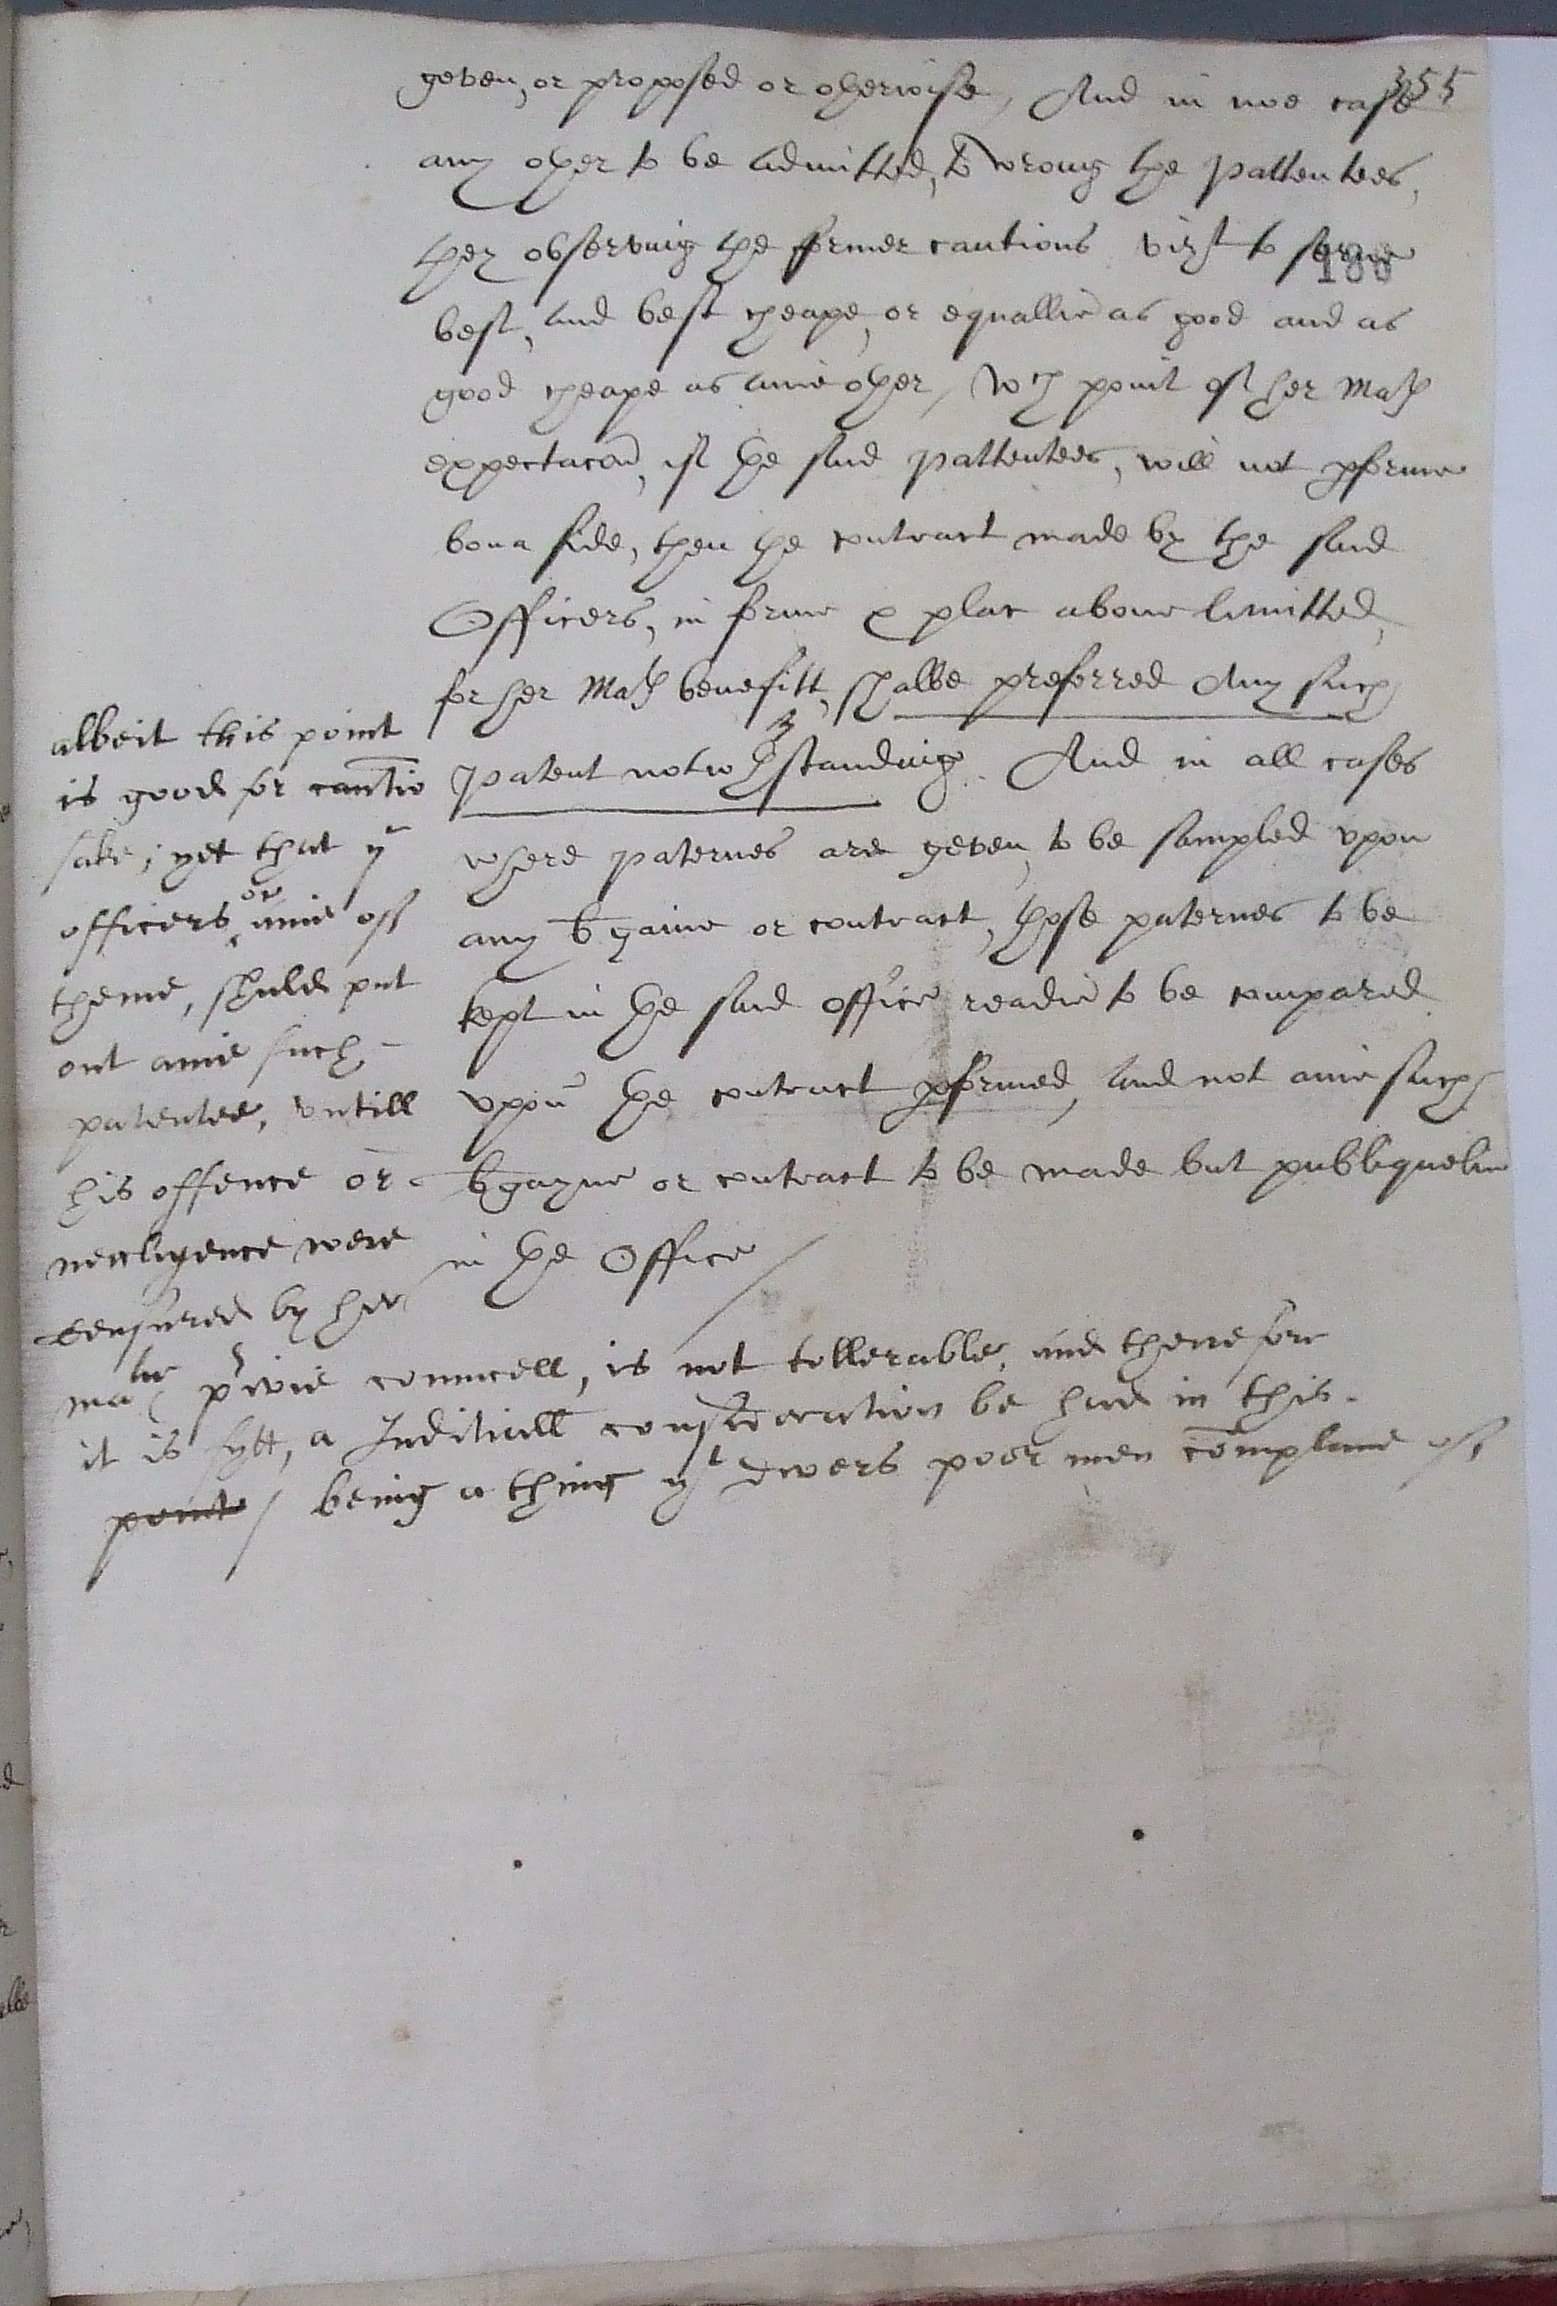 355
geven, or proposed or otherwise, And in noe case
any other to be admitted, to wrong the Pattentees,
they observing the former cautions vizt to serve
188
best, and best cheape, or equallie as good and as
good cheape as anie other, wch point of her Mats
expectacon, if the said Pattentees, will not pforme
bona fide, then the contract made by the said
Officers, in forme & place above limitted,
for her Mats benefitt, shalbe preferred Any such
Patent notwthstanding. And in all cases
where paternes are geven, to be sampled upon
any bgaine or contract, those paternes to be
kept in the said office readie to be compared
upon the contract pformed, and not anie such
bgayne or contract to be made but publiquelie
in the Office /
albeit this point
is good for cautio
sake, yet that ye
officers or anie off
theme, shuld put
out anie such
patentee, untill
his offence or
necligence were
censured by her
matie privie councell, is not tollerable, and therefore
it is fytt, a Juditiall consideration be had in this
point / being a thing yt divers poer men complaine off